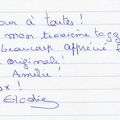 our à toutes!
mon troisième tag
beaucoup apprécié
originale!
Amélie!
x!
Elodie